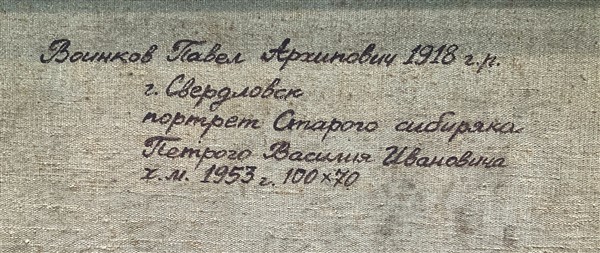 Воинков Павел Архипович 1918 г.р.
г. Свердловск
портрет Старого сибиряка
Петрого Василия Ивановича
х.м. 1953 г. 100×70